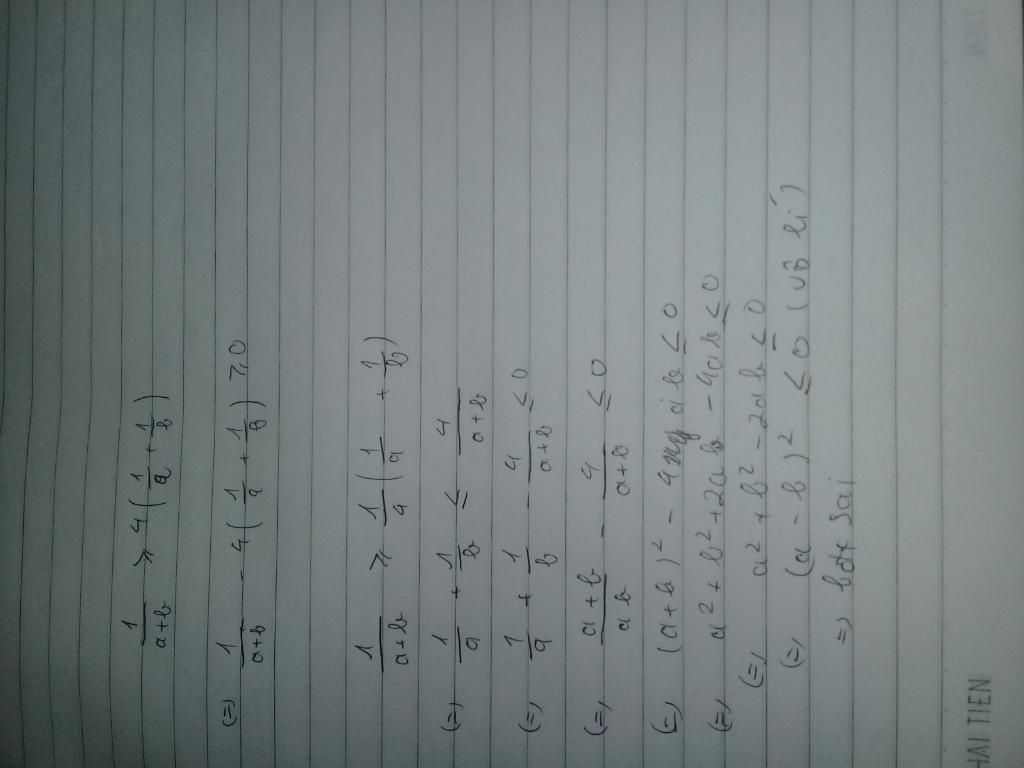 1/(a+b) ≥ 4(1/a + 1/b)
(=) 1/(a+b) - 4(1/a + 1/b) ≥ 0
1/(a+b) ≥ 1/4 (1/a + 1/b)
(=) 1/a + 1/b ≤ 4/(a+b)
(=) 1/a + 1/b - 4/(a+b) ≤ 0
(=) (a+b)/(ab) - 4/(a+b) ≤ 0
(=) (a+b)² - 4ab ≤ 0
(=) a² + b² + 2ab - 4ab ≤ 0
(=) a² + b² - 2ab ≤ 0
(=) (a - b)² ≤ 0 (vô lí)
=) bđt sai
HAI TIEN